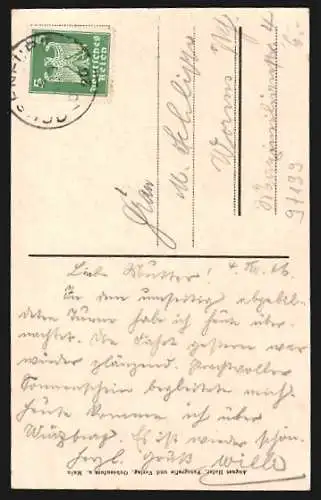 Deutsches Reich
5
Frau
M. Schliffer
Worms a/Rh
97199
Liebe Mutter! 4. IV. 26.
In den umseitig abgebil-
deten Turm habe ich heute über-
nachtet. Die Fahrt gestern war
wieder glänzend. Prachtvoller
Sonnenschein begleitete mich.
Heute komme ich über
Würzburg. Es ist wieder schön.
Herzl. Gruß Willi
August Hofer, Fotografie und Verlag, Ochsenfurt a. Main